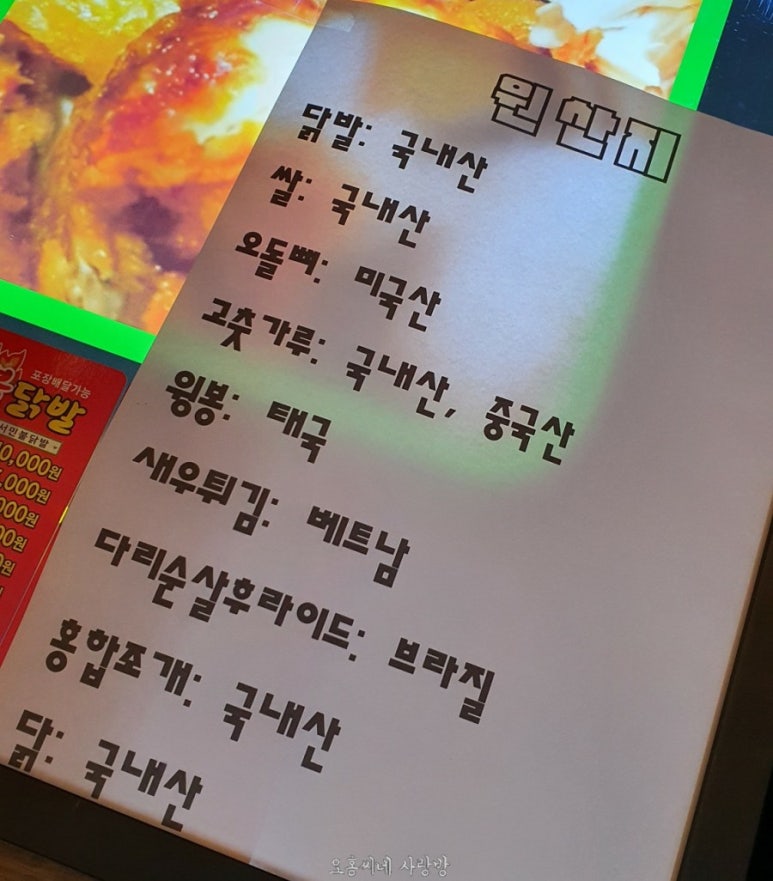 원산지
닭발: 국내산
쌀: 국내산
오돌뼈: 미국산
고춧가루: 국내산, 중국산
윙봉: 태국
새우튀김: 베트남
다리순살후라이드: 브라질
홍합조개: 국내산
닭: 국내산
포장배달가능
닭발
0,000원
,000원
000원
00원
0원
요홍씨네 사랑방